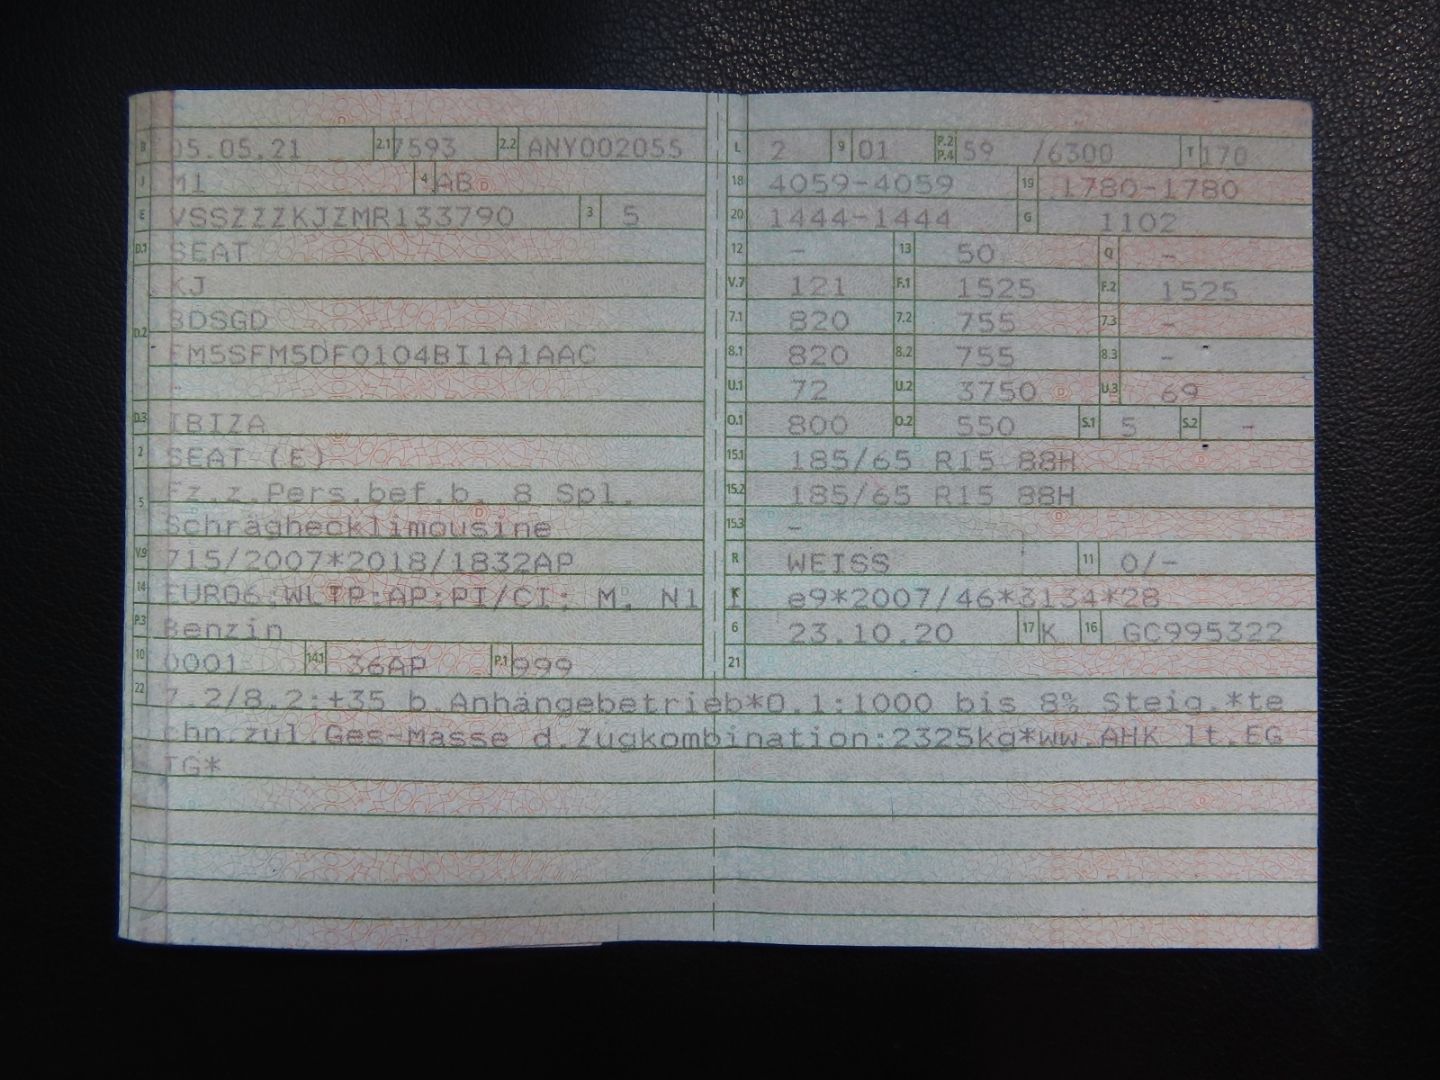 B 05.05.21 2.1 7593 2.2 ANY002055
J M1 4 AB
E VSSZZZKJZMR133790 3 5
D.1 SEAT
KJ
D.2 BDSGD
FM5SFM5DF0104BI1A1AAC
-
D.3 IBIZA
2 SEAT (E)
5 Fz.z.Pers.bef.b. 8 Spl.
Schräghecklimousine
V.9 715/2007*2018/1832AP
14 EURO6;WLTP;AP;PI/CI; M, N1 I
P.3 Benzin
10 0001 14.1 36AP P.1 999
L 2 9 01 P.2 P.4 59 /6300 T 170
18 4059-4059 19 1780-1780
20 1444-1444 G 1102
12 - 13 50 Q -
V.7 121 F.1 1525 F.2 1525
7.1 820 7.2 755 7.3 -
8.1 820 8.2 755 8.3 -
U.1 72 U.2 3750 U.3 69
O.1 800 O.2 550 S.1 5 S.2 -
15.1 185/65 R15 88H
15.2 185/65 R15 88H
15.3 -
R WEISS 11 0/-
K e9*2007/46*3134*28
6 23.10.20 17 K 16 GC995322
21
22 7.2/8.2:+35 b.Anhängebetrieb*O.1:1000 bis 8% Steig.*te
chn.zul.Ges-Masse d.Zugkombination:2325kg*ww.AHK lt.EG
TG*